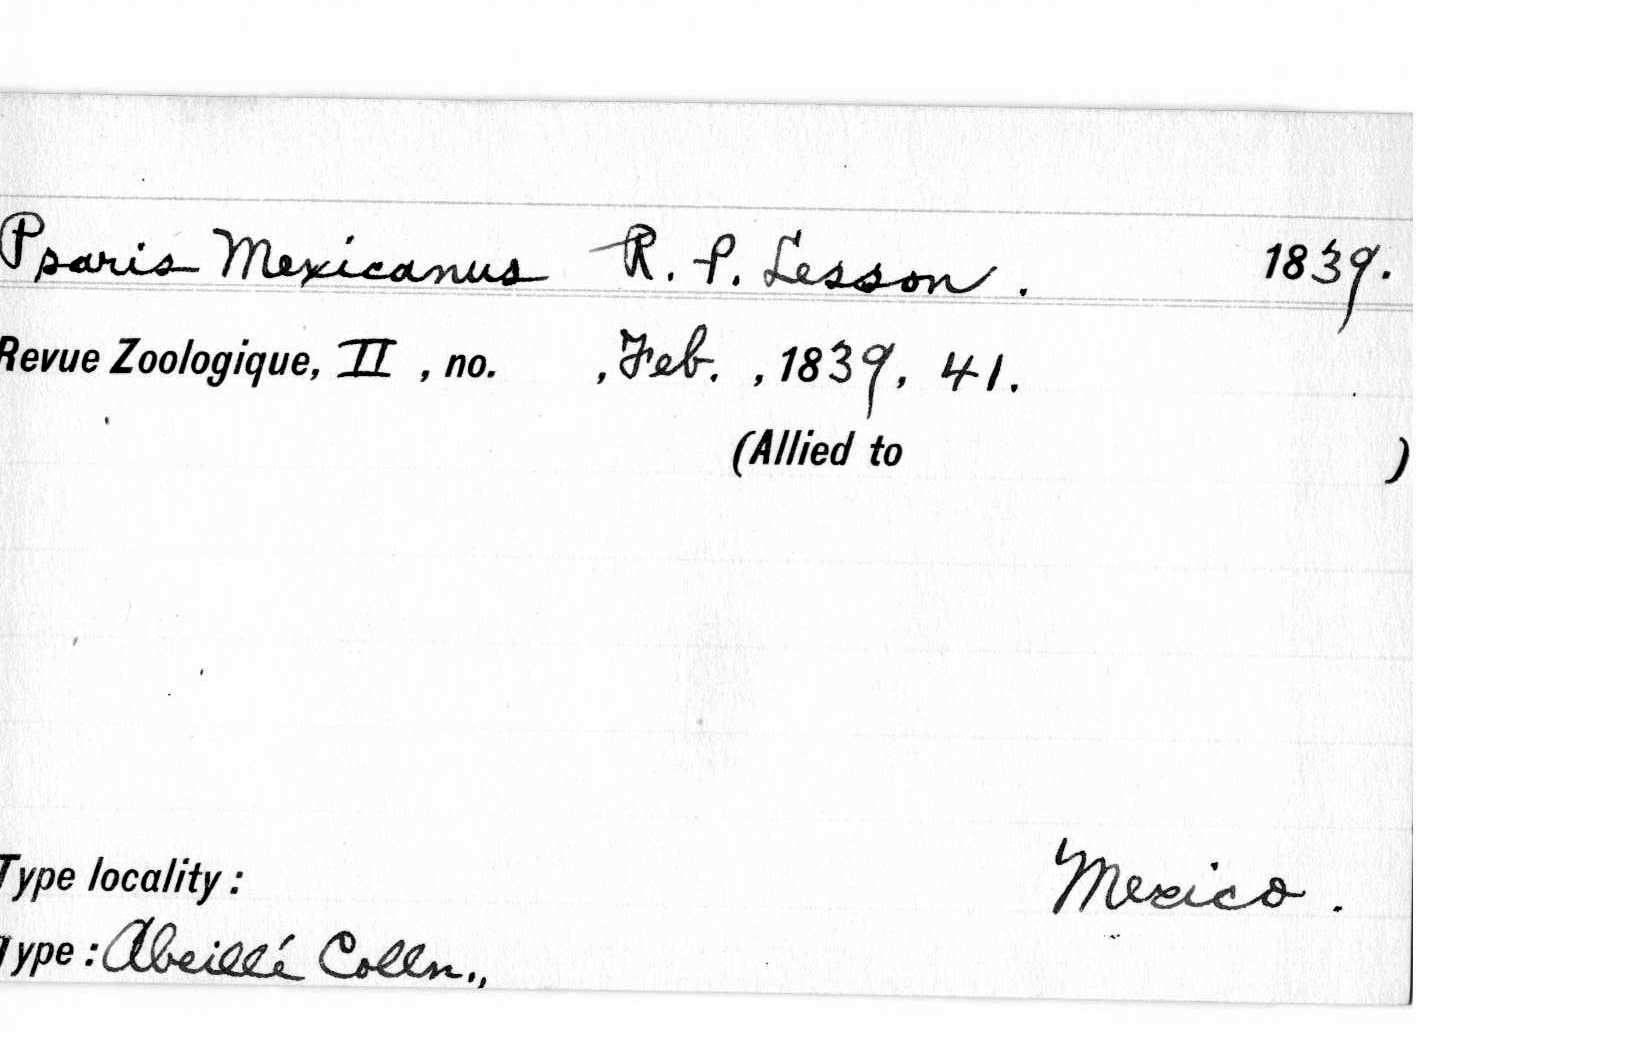 Psaris Mexicanus R. P. Lesson. 1839.
Revue Zoologique, II, no. , Feb. , 1839, 41.
(Allied to )
Type locality: Mexico.
Type: Abeillé Colln.,